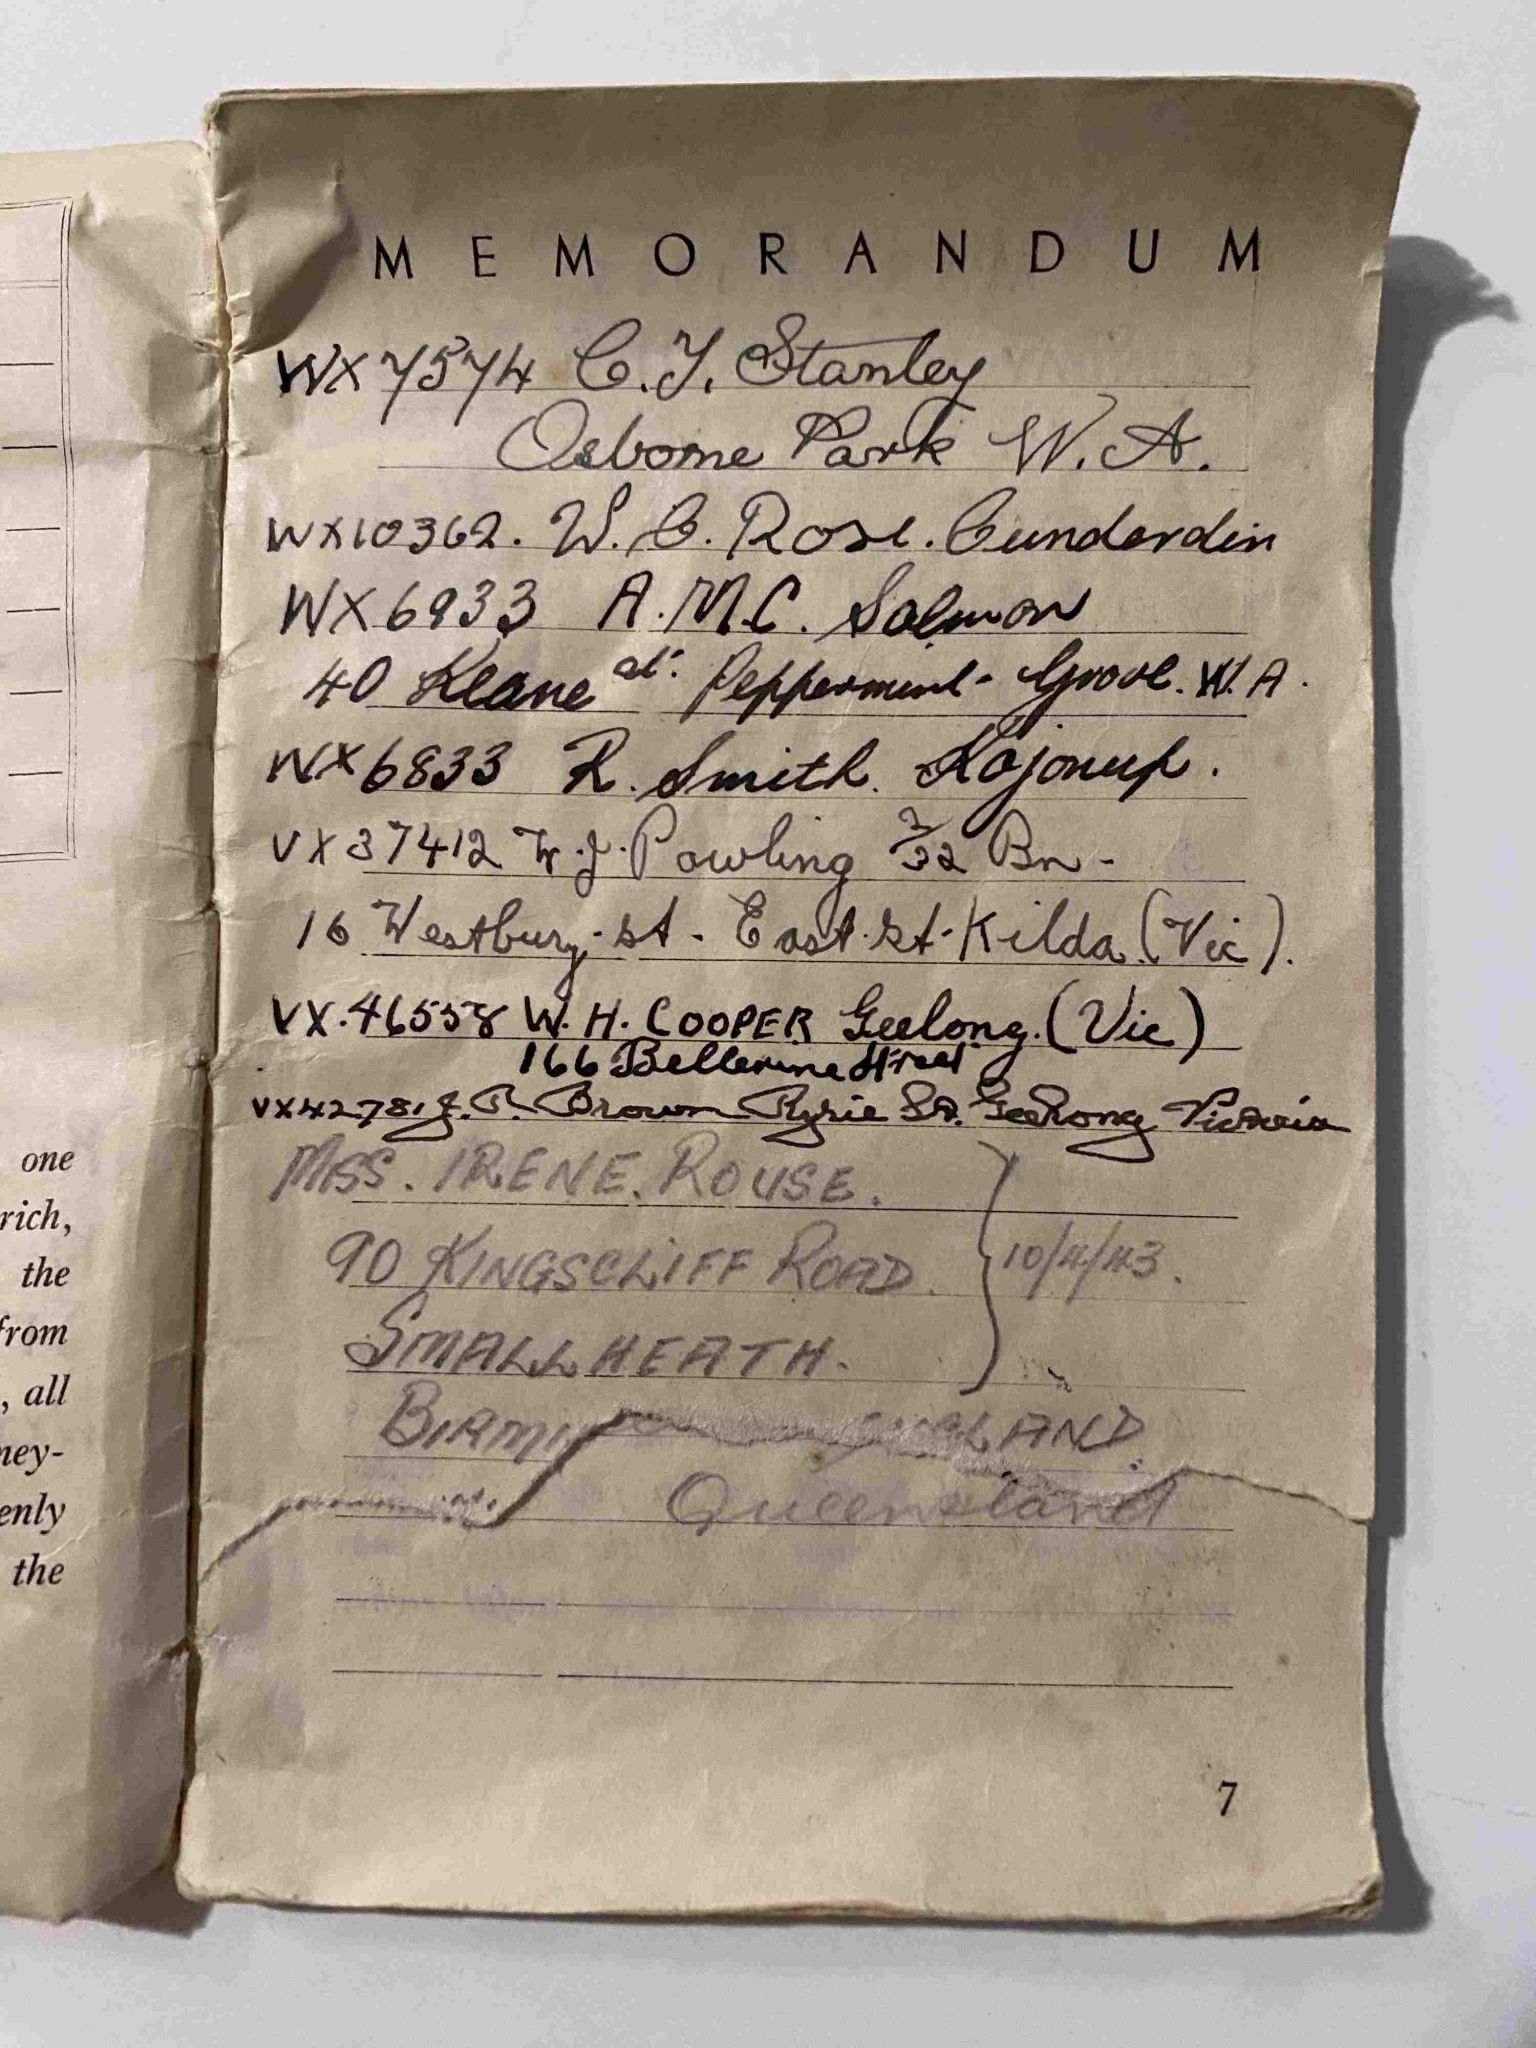 MEMORANDUM
WX7574 C. J. Stanley
Osborne Park W. A.
WX10362. W. C. Rose. Cunderdin
WX6933 A. M.C. Salmon
40 Keane st. Peppermint Grove. W. A.
WX6833 R. Smith. Kojonup.
VX37412 W. J. Powling 2/32 Bn -
16 Westbury. st. East. St. Kilda. (Vic).
VX.46558 W. H. COOPER Geelong. (Vic)
166 Bellerine Street
VX42781. J. P. Brown Ryrie St. Geelong Victoria
MISS. IRENE. ROUSE.
90 KINGSCLIFF ROAD. 10/4/43.
SMALL HEATH.
LAND.
Queensland
7
one
rich,
the
from
, all
ney-
enly
the